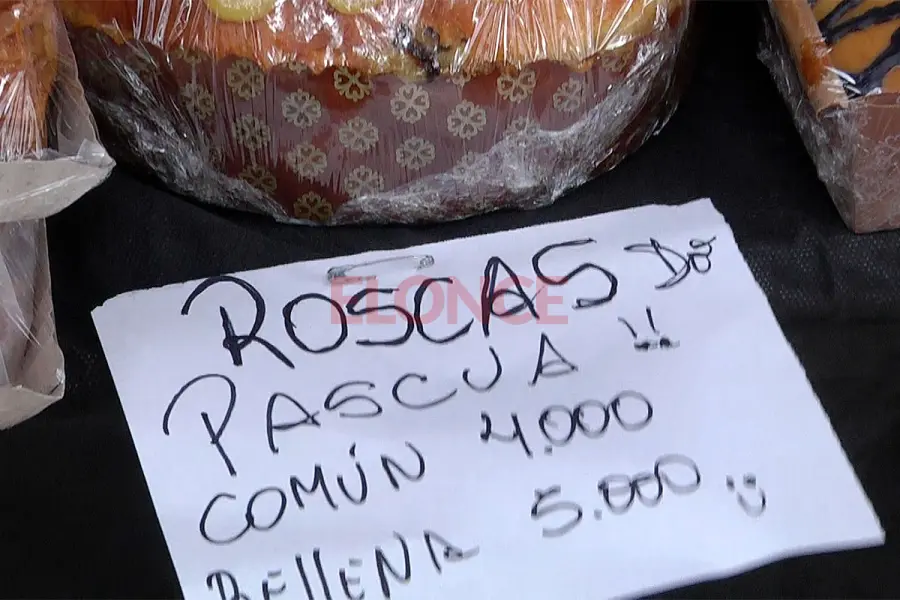 ROSCAS DE
PASCUA !!
COMÚN 4.000
RELLENA 5.000 :)
ELONCE